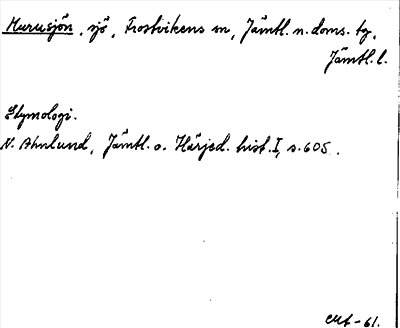 Murusjön, sjö, Frostvikens sn, Jämtl. n. doms. tg,
Jämtl. l.
Etymologi.
N. Ahnlund, Jämtl. o. Härjed. hist. I, s. 605.
-61.